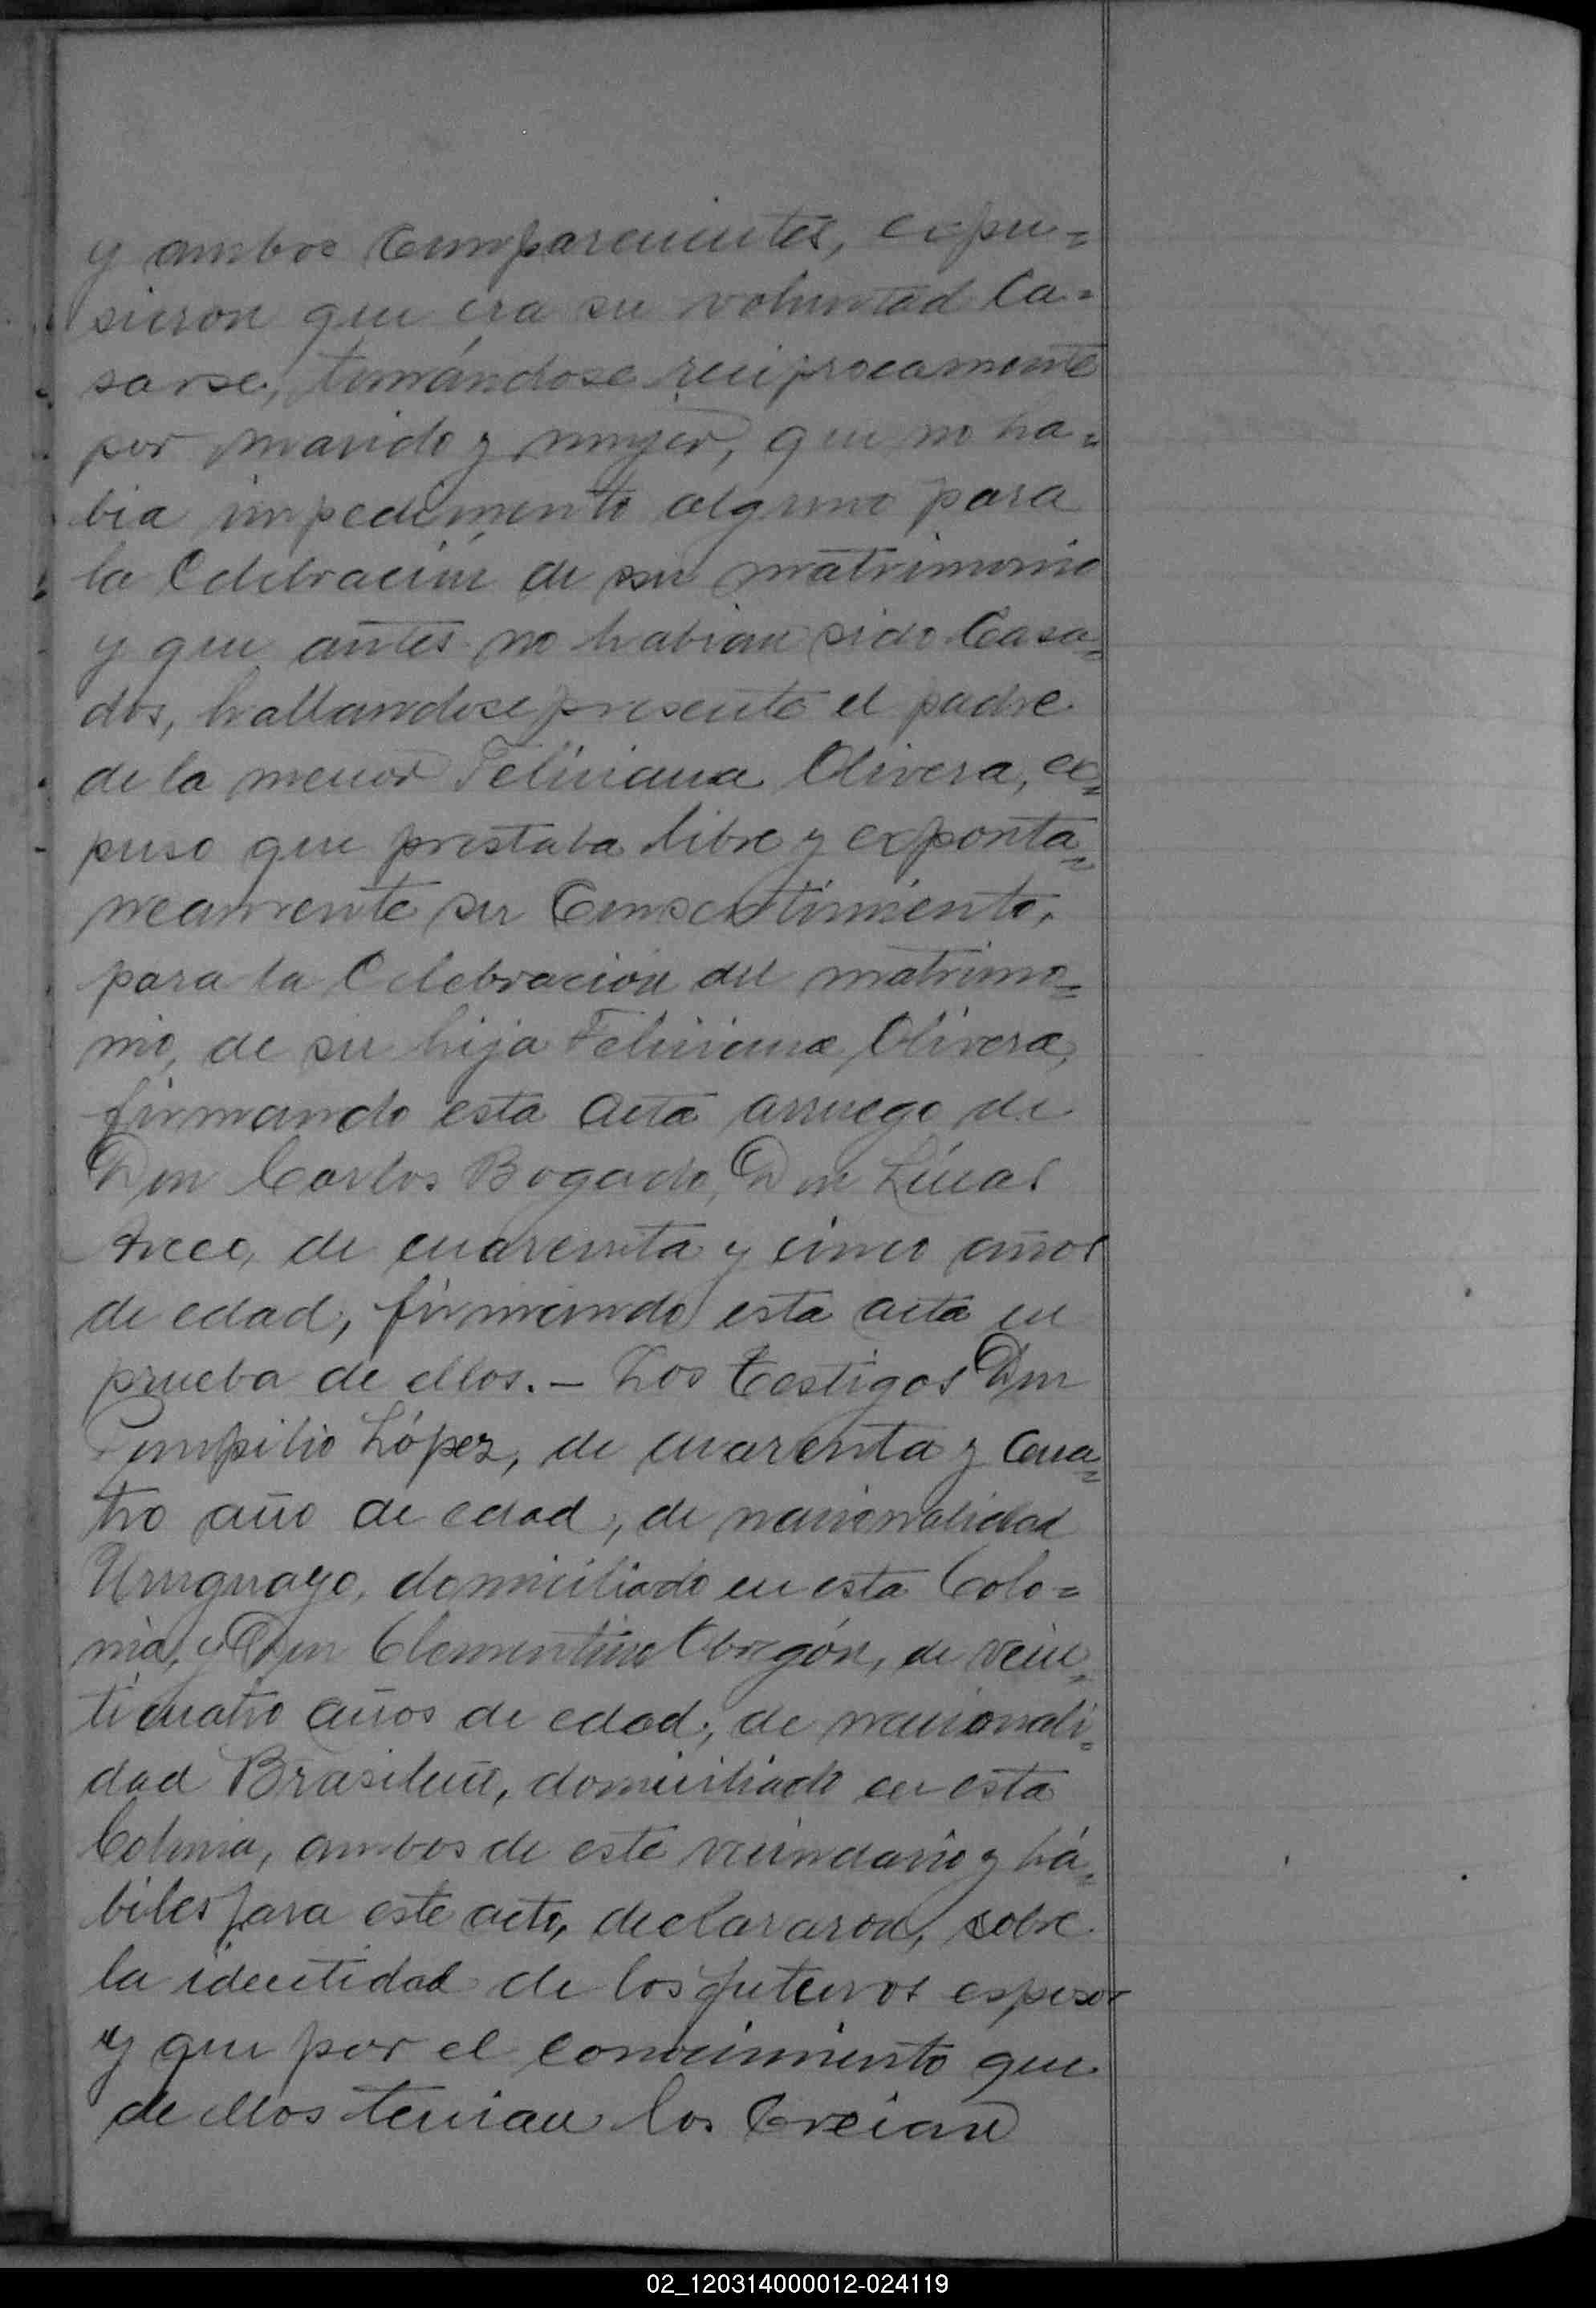 y ambos Comparecientes, expu=
sieron que era su voluntad Ca=
sarse, tomándose reciprocamente
por marido y mujer, que no ha=
bia impedimento alguno para
la Celebración de su matrimonio
y que antes no habian sido Casa=
dos, hallandose presente el padre
de la menor Feliciana Olivera, ex=
puso que prestaba libre y exponta=
neamente su Consentimiento,
para la Celebración del matrimo=
nio, de su hija Feliciana Olivera,
firmando esta acta arruego de
Don Carlos Bogado, Don Lucas
de cuarenta y cinco años
de edad, firmando esta acta en
prueba de ellos. — Los testigos Don
Pompilio López, de cuarenta y Cua=
tro año de edad, de nacionalidad
Uruguayo, domiciliado en esta Colo=
nia, y Don Clementino Obregón, de vein=
ticuatro años de edad, de nacionali=
dad domiciliado en esta
Colonia, ambos de este vecindario y há=
biles para este acto, declararon, sobre
la identidad de los futuros esposos
y que por el conocimiento que
de ellos tenian los Creian
02_120314000012-024119